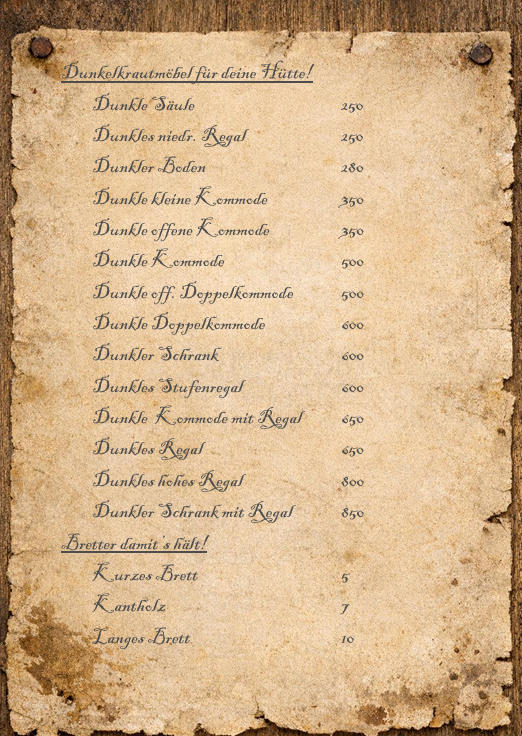 Dunkelkrautmöbel für deine Hütte!
Dunkle Säule 250
Dunkles niedr. Regal 250
Dunkler Boden 280
Dunkle kleine Kommode 350
Dunkle offene Kommode 350
Dunkle Kommode 500
Dunkle off. Doppelkommode 500
Dunkle Doppelkommode 600
Dunkler Schrank 600
Dunkles Stufenregal 600
Dunkle Kommode mit Regal 650
Dunkles Regal 650
Dunkles hohes Regal 800
Dunkler Schrank mit Regal 850
Bretter damit's hält!
Kurzes Brett 5
Kantholz 7
Langes Brett 10